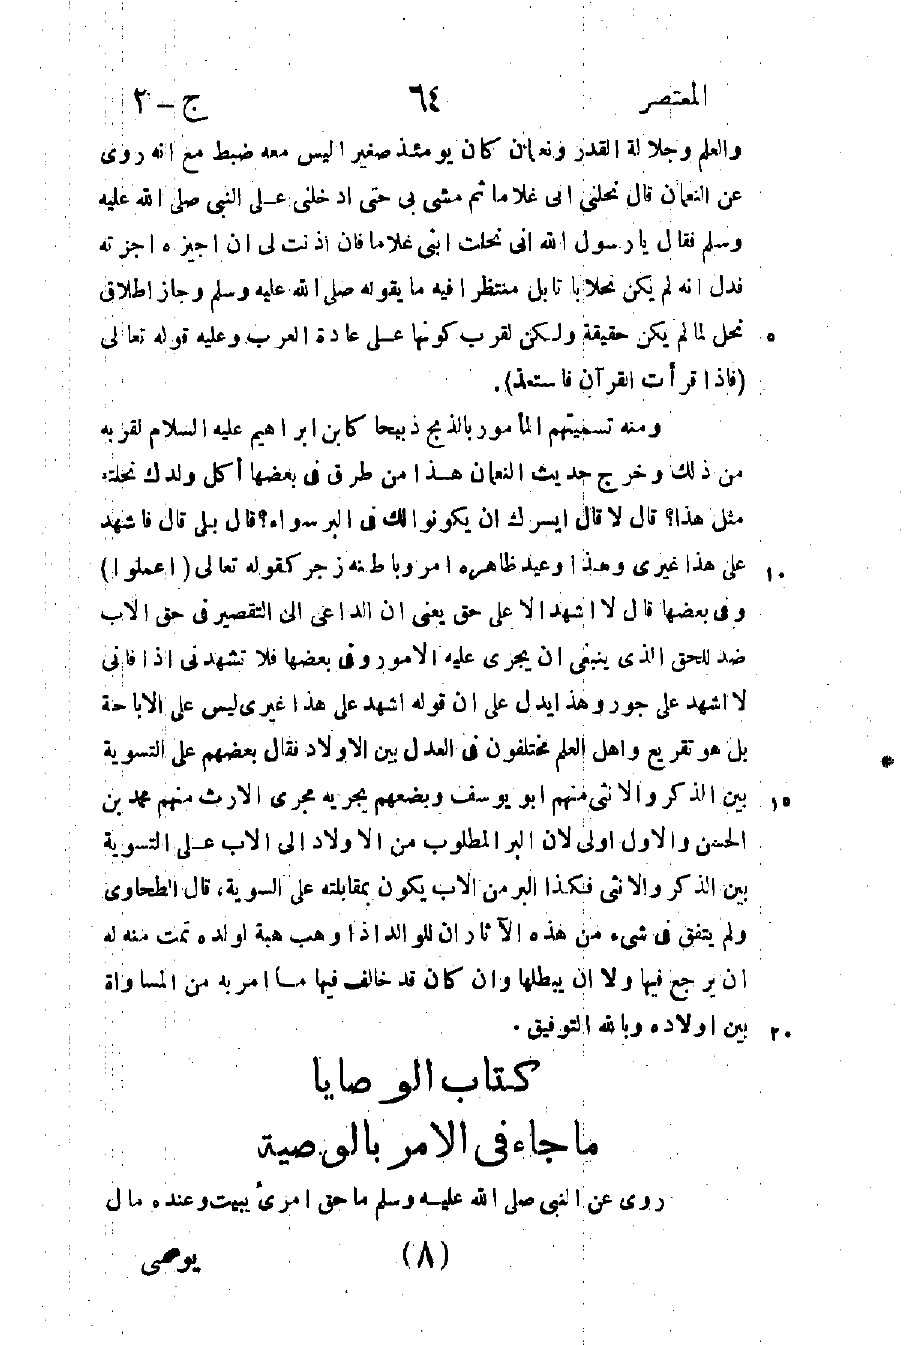 المعتصر ٦٤ ج - ٢
والعلم وجلالة القدر ونعمان كان يومئذ صغيرا ليس معه ضبط مع انه روى
عن النعمان قال نحلني ابى غلاما ثم مشى بى حتى ادخلنى على النبى صلى الله عليه
وسلم فقال يا رسول الله انى نحلت ابنى غلاما فان اذنت لى ان اجيزه اجزته
فدل انه لم يكن نحلا باتا بل منتظرا فيه ما يقوله صلى الله عليه وسلم وجاز اطلاق
نحل لما لم يكن حقيقة ولكن لقرب كونها على عادة العرب وعليه قوله تعالى ٥
(فاذا قرأت القرآن فاستعذ).
ومنه تسميتهم المأمور بالذبح ذبيحا كابن ابراهيم عليه السلام لقربه
من ذلك وخرج حديث النعمان هذا من طرق فى بعضها أكل ولدك نحلته
مثل هذا؟ قال لا قال ايسرك ان يكونوا لك فى البر سواء؟ قال بلى قال فاشهد
على هذا غيرى وهذا وعيد ظاهره امر وباطنه زجر كقوله تعالى (اعملوا) ١٠
وفى بعضها قال لا اشهد الا على حق يعنى ان الداعى الى التقصير فى حق الاب
ضد للحق الذى ينبغى ان يجرى عليه الامور وفى بعضها فلا تشهدنى اذا فانى
لا اشهد على جور وهذا يدل على ان قوله اشهد على هذا غيرى ليس على الاباحة
بل هو تقريع واهل العلم مختلفون فى العدل بين الاولاد فقال بعضهم على التسوية *
بين الذكر والانثى منهم ابو يوسف وبضعهم يجريه مجرى الارث منهم محمد بن ١٥
الحسن والاول اولى لان البر المطلوب من الاولاد الى الاب على التسوية
بين الذكر والانثى فكذا البر من الاب يكون بمقابلته على السوية، قال الطحاوى
ولم يتفق فى شىء من هذه الآثار ان للوالد اذا وهب هبة لولده تمت منه له
ان يرجع فيها ولا ان يبطلها وان كان قد خالف فيها ما امر به من المساواة
بين اولاده وبالله التوفيق . ٢٠
كتاب الوصايا
ما جاء فى الامر بالوصية
روى عن النبى صلى الله عليه وسلم ما حق امرئ يبيت وعنده مال
(٨) يوصى